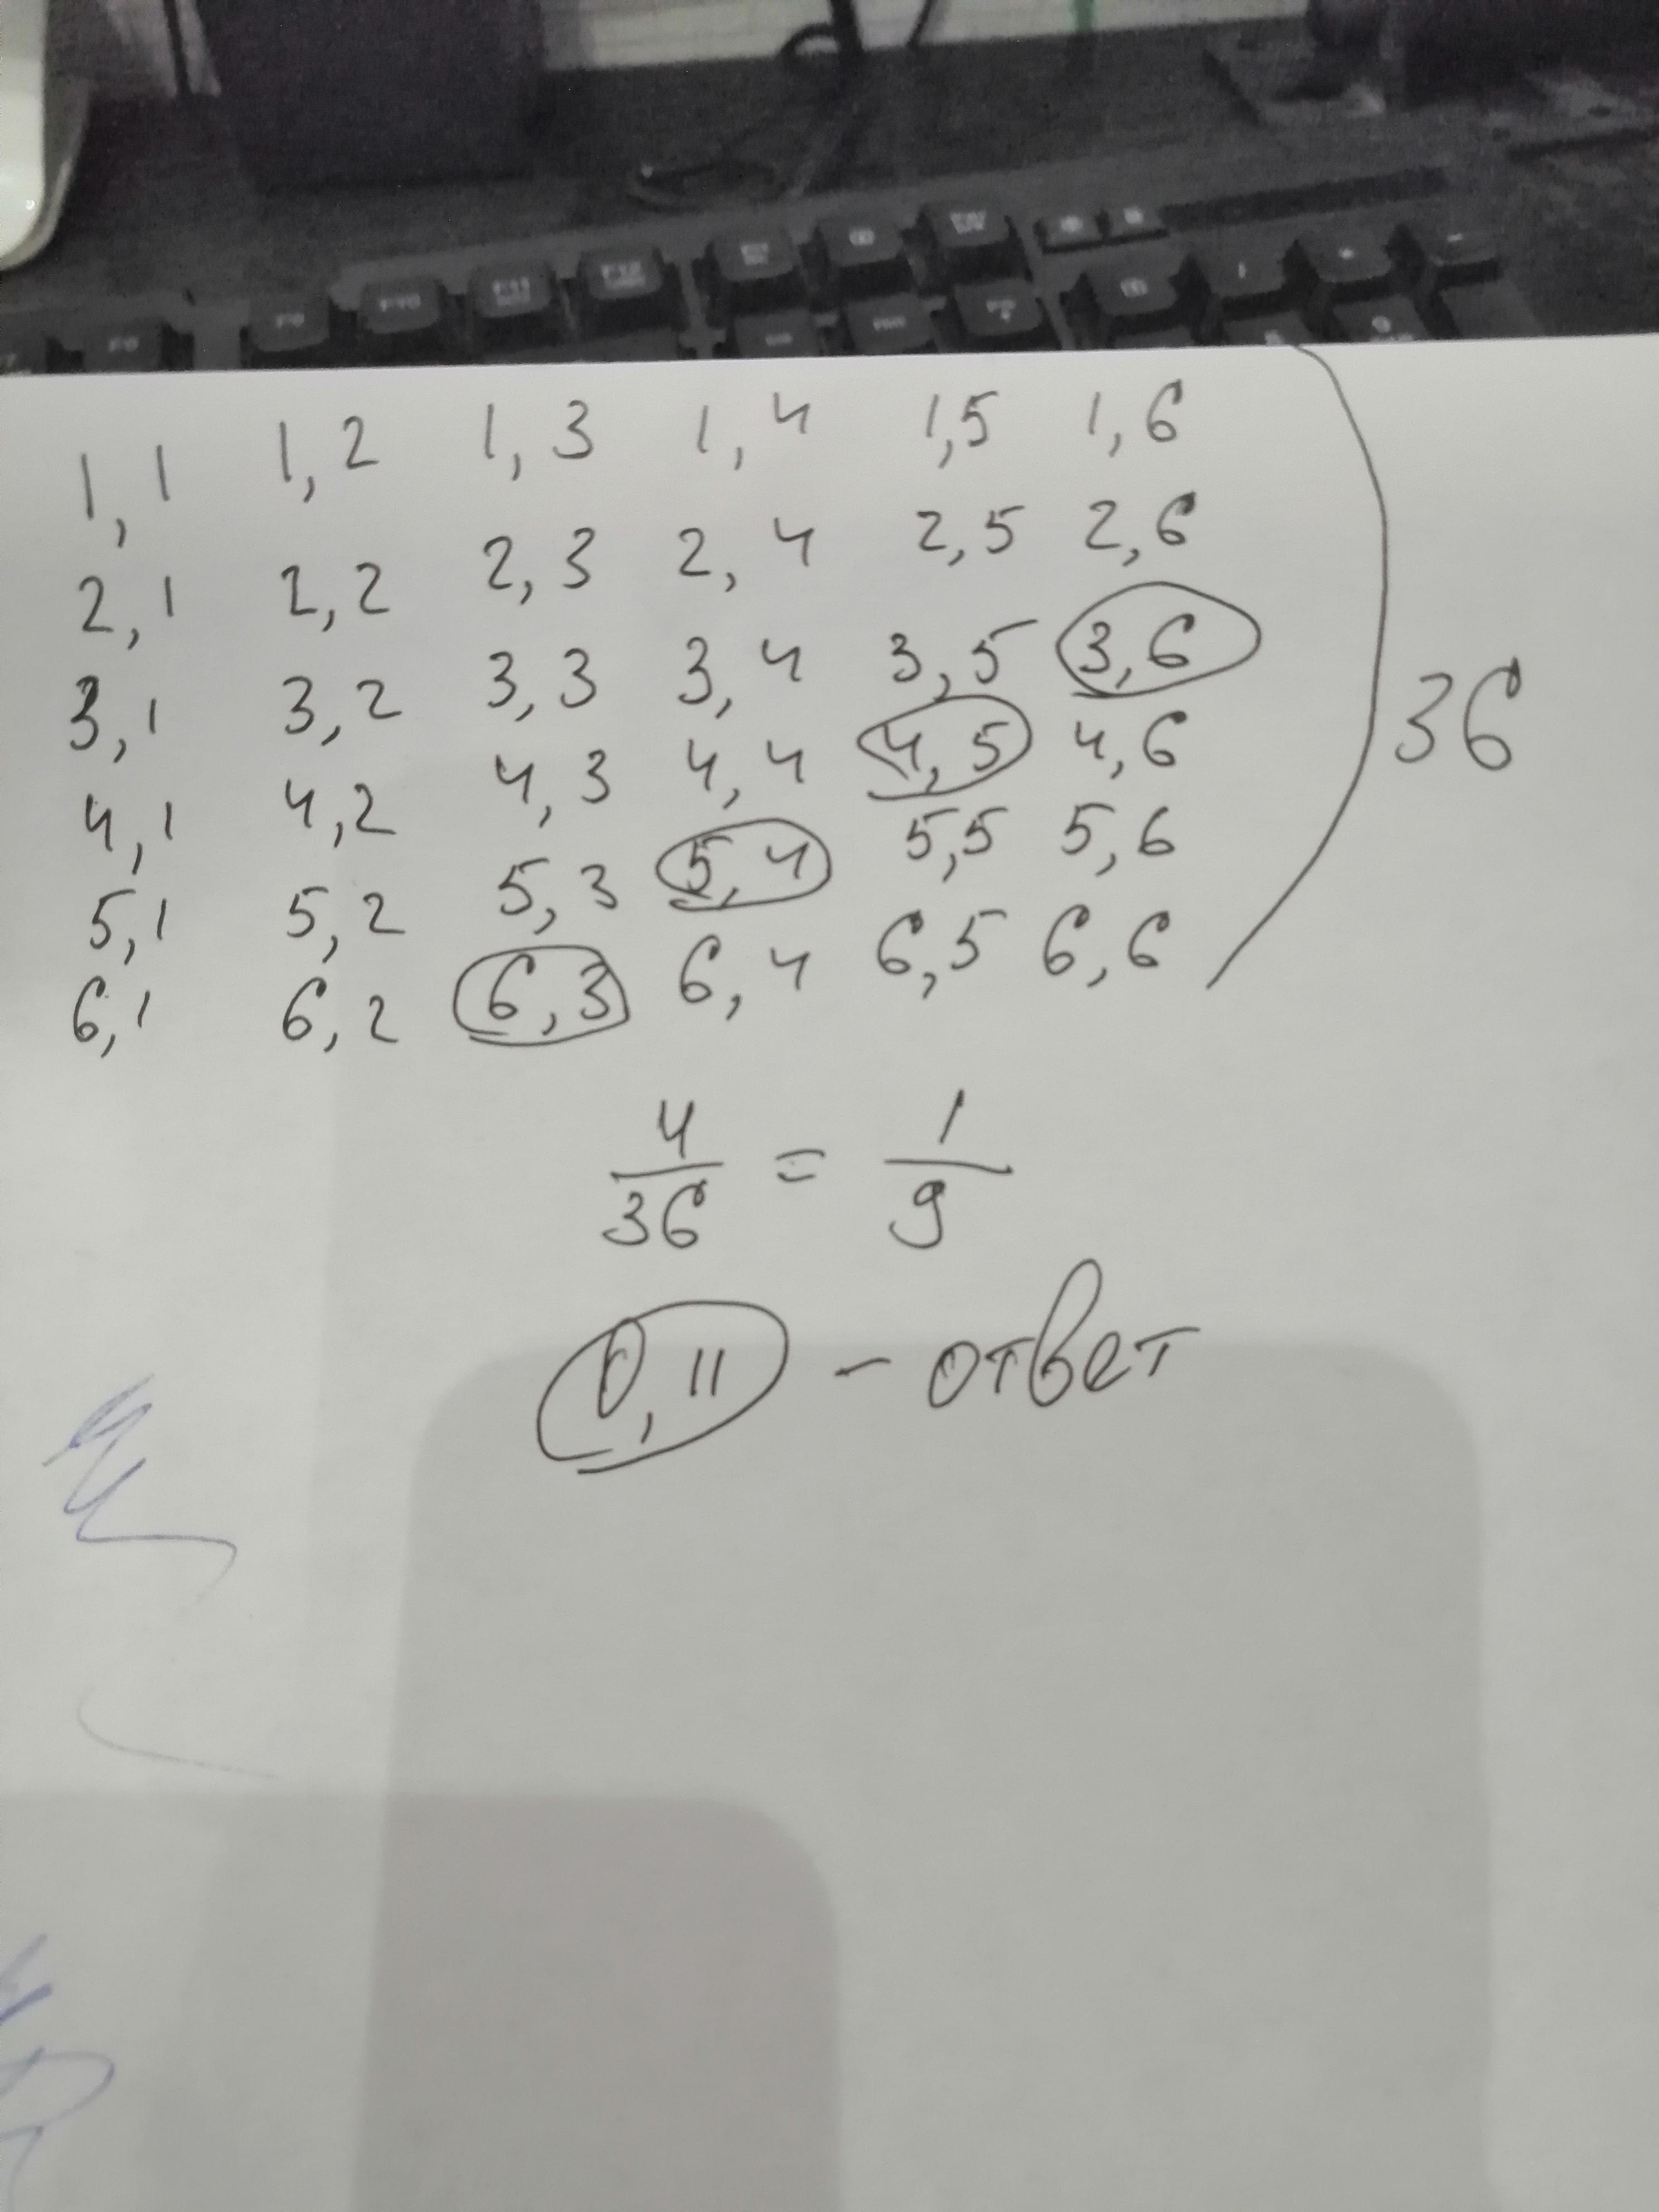 1,1 1,2 1,3 1,4 1,5 1,6
2,1 2,2 2,3 2,4 2,5 2,6
3,1 3,2 3,3 3,4 3,5 3,6
4,1 4,2 4,3 4,4 4,5 4,6
5,1 5,2 5,3 5,4 5,5 5,6
6,1 6,2 6,3 6,4 6,5 6,6
36
4/36 = 1/9
0,11 - ответ